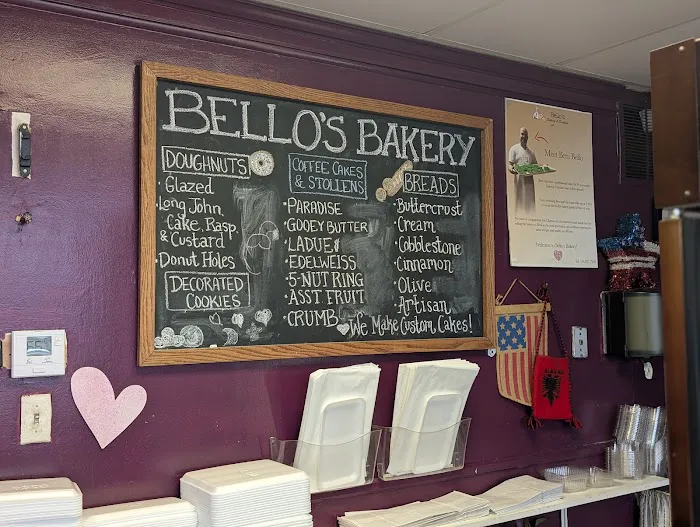 BELLO'S BAKERY
DOUGHNUTS
· Glazed
· Long John,
Cake, Rasp.
& Custard
· Donut Holes
DECORATED
COOKIES
COFFEE CAKES
& STOLLENS
· PARADISE
· GOOEY BUTTER
· LADUE
· EDELWEISS
· 5-NUT RING
· ASST FRUIT
· CRUMB
BREADS
· Buttercrust
· Cream
· Cobblestone
· Cinnamon
· Olive
· Artisan
We Make Custom Cakes!
Meet Remi Bello